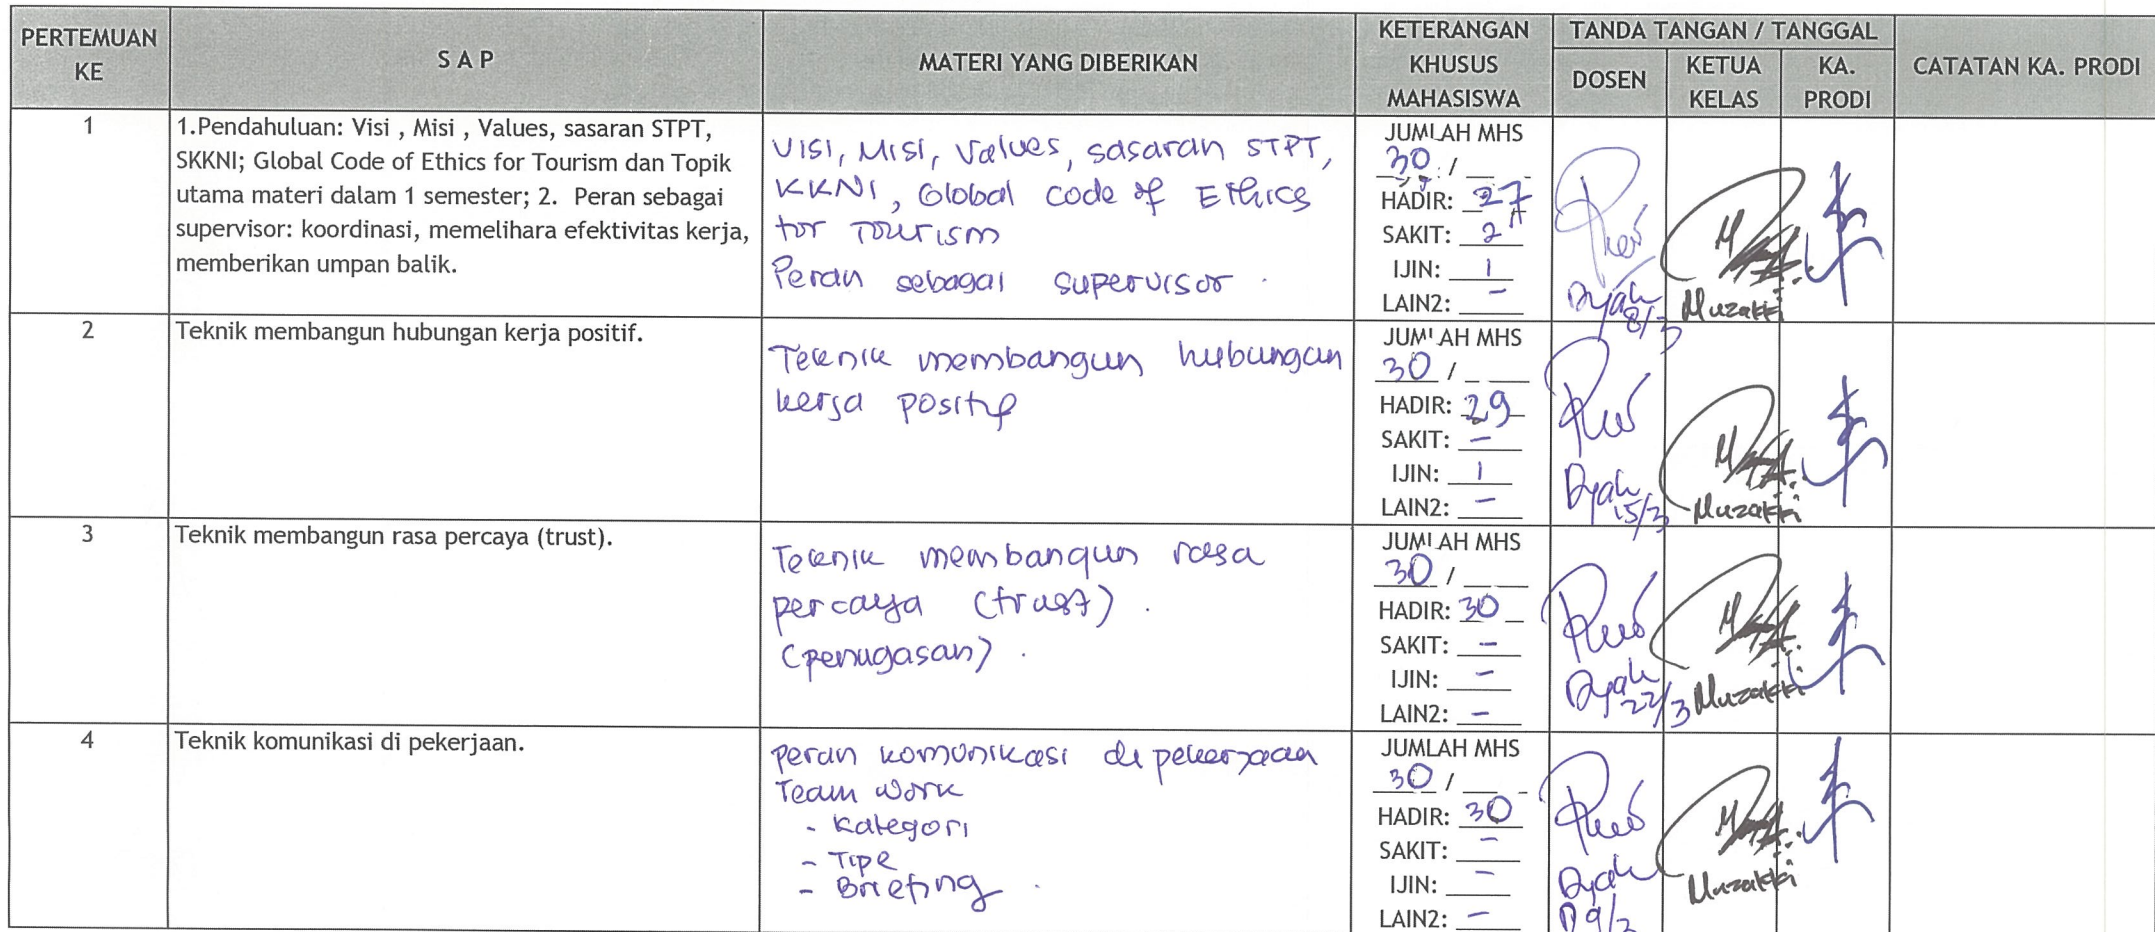 PERTEMUAN KE
S A P
MATERI YANG DIBERIKAN
KETERANGAN KHUSUS MAHASISWA
TANDA TANGAN / TANGGAL
DOSEN
KETUA KELAS
KA. PRODI
CATATAN KA. PRODI
1
1.Pendahuluan: Visi , Misi , Values, sasaran STPT,
SKKNI; Global Code of Ethics for Tourism dan Topik
utama materi dalam 1 semester; 2. Peran sebagai
supervisor: koordinasi, memelihara efektivitas kerja,
memberikan umpan balik.
Visi, Misi, Values, sasaran STPT,
KKNI, Global Code of Ethics
for Tourism
Peran sebagai supervisor.
JUMLAH MHS
30 /
HADIR: 27
SAKIT: 2
IJIN: 1
LAIN2: -
Dyah
8/3
Muzakki
2
Teknik membangun hubungan kerja positif.
Teknik membangun hubungan
kerja positif
JUMLAH MHS
30 /
HADIR: 29
SAKIT: -
IJIN: 1
LAIN2: -
Dyah
15/3
Muzakki
3
Teknik membangun rasa percaya (trust).
Teknik membangun rasa
percaya (trust).
(penugasan).
JUMLAH MHS
30 /
HADIR: 30
SAKIT: -
IJIN: -
LAIN2: -
Dyah
22/3
Muzakki
4
Teknik komunikasi di pekerjaan.
peran komunikasi di pekerjaan
Team work
- Kategori
- Tipe
- Briefing.
JUMLAH MHS
30 /
HADIR: 30
SAKIT: -
IJIN: -
LAIN2: -
Dyah
Muzakki